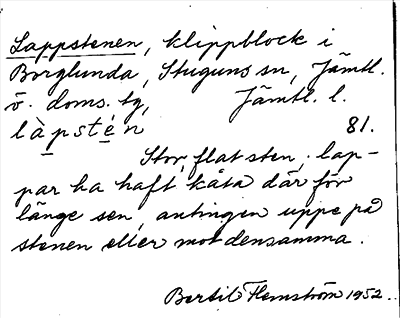 Lappstenen, klippblock i
Borglunda, Stuguns sn, Jämtl.
ö. doms. tg, Jämtl. l.
là̱psté̱n 81.
Stor, flat sten; lap-
par ha haft kåta där för
länge sen, antingen uppe på
stenen eller mot densamma.
Bertil Flemström 1952.